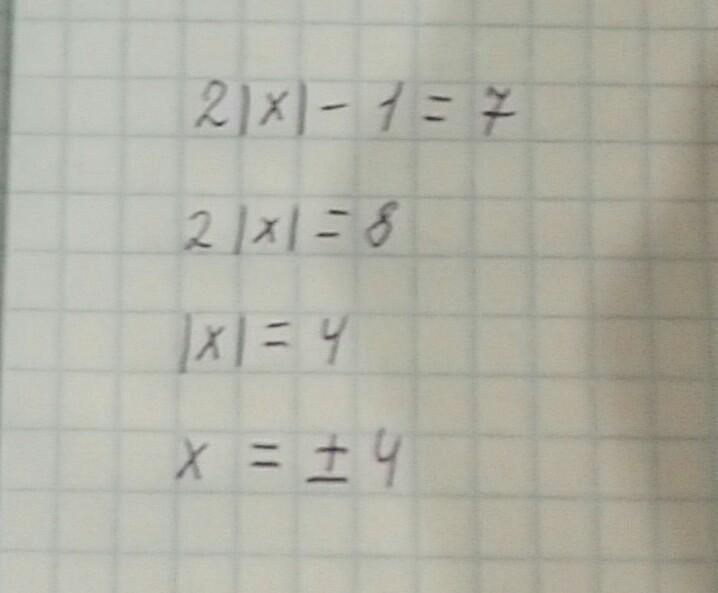 2|x| - 1 = 7
2|x| = 8
|x| = 4
x = ± 4